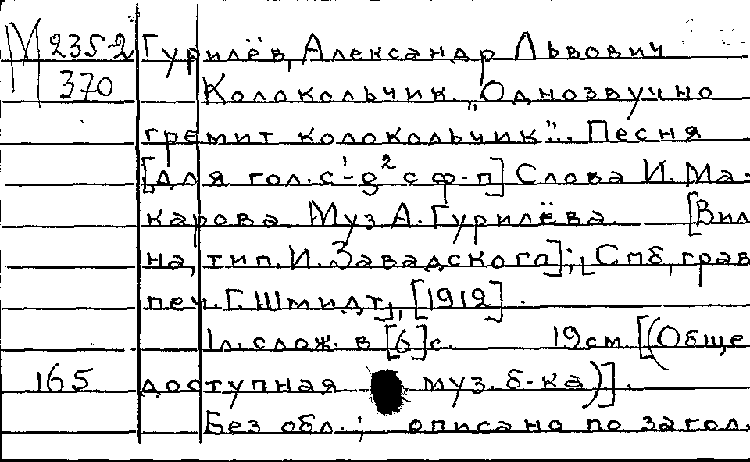 М 2352 Гурилёв, Александр Львович
370 Колокольчик. „Однозвучно
гремит колокольчик". Песня
[для гол. c¹-g² с ф-п] Слова И. Ма-
карова Муз А. Гурилёва. [Вил
на, тип. И. Завадского]; [Спб, грав
печ. Г. Шмидт], [1912].
1 л. слож. в [6] с. 19 см [(Обще
165 доступная муз. б-ка)].
Без обл.; описано по загол.